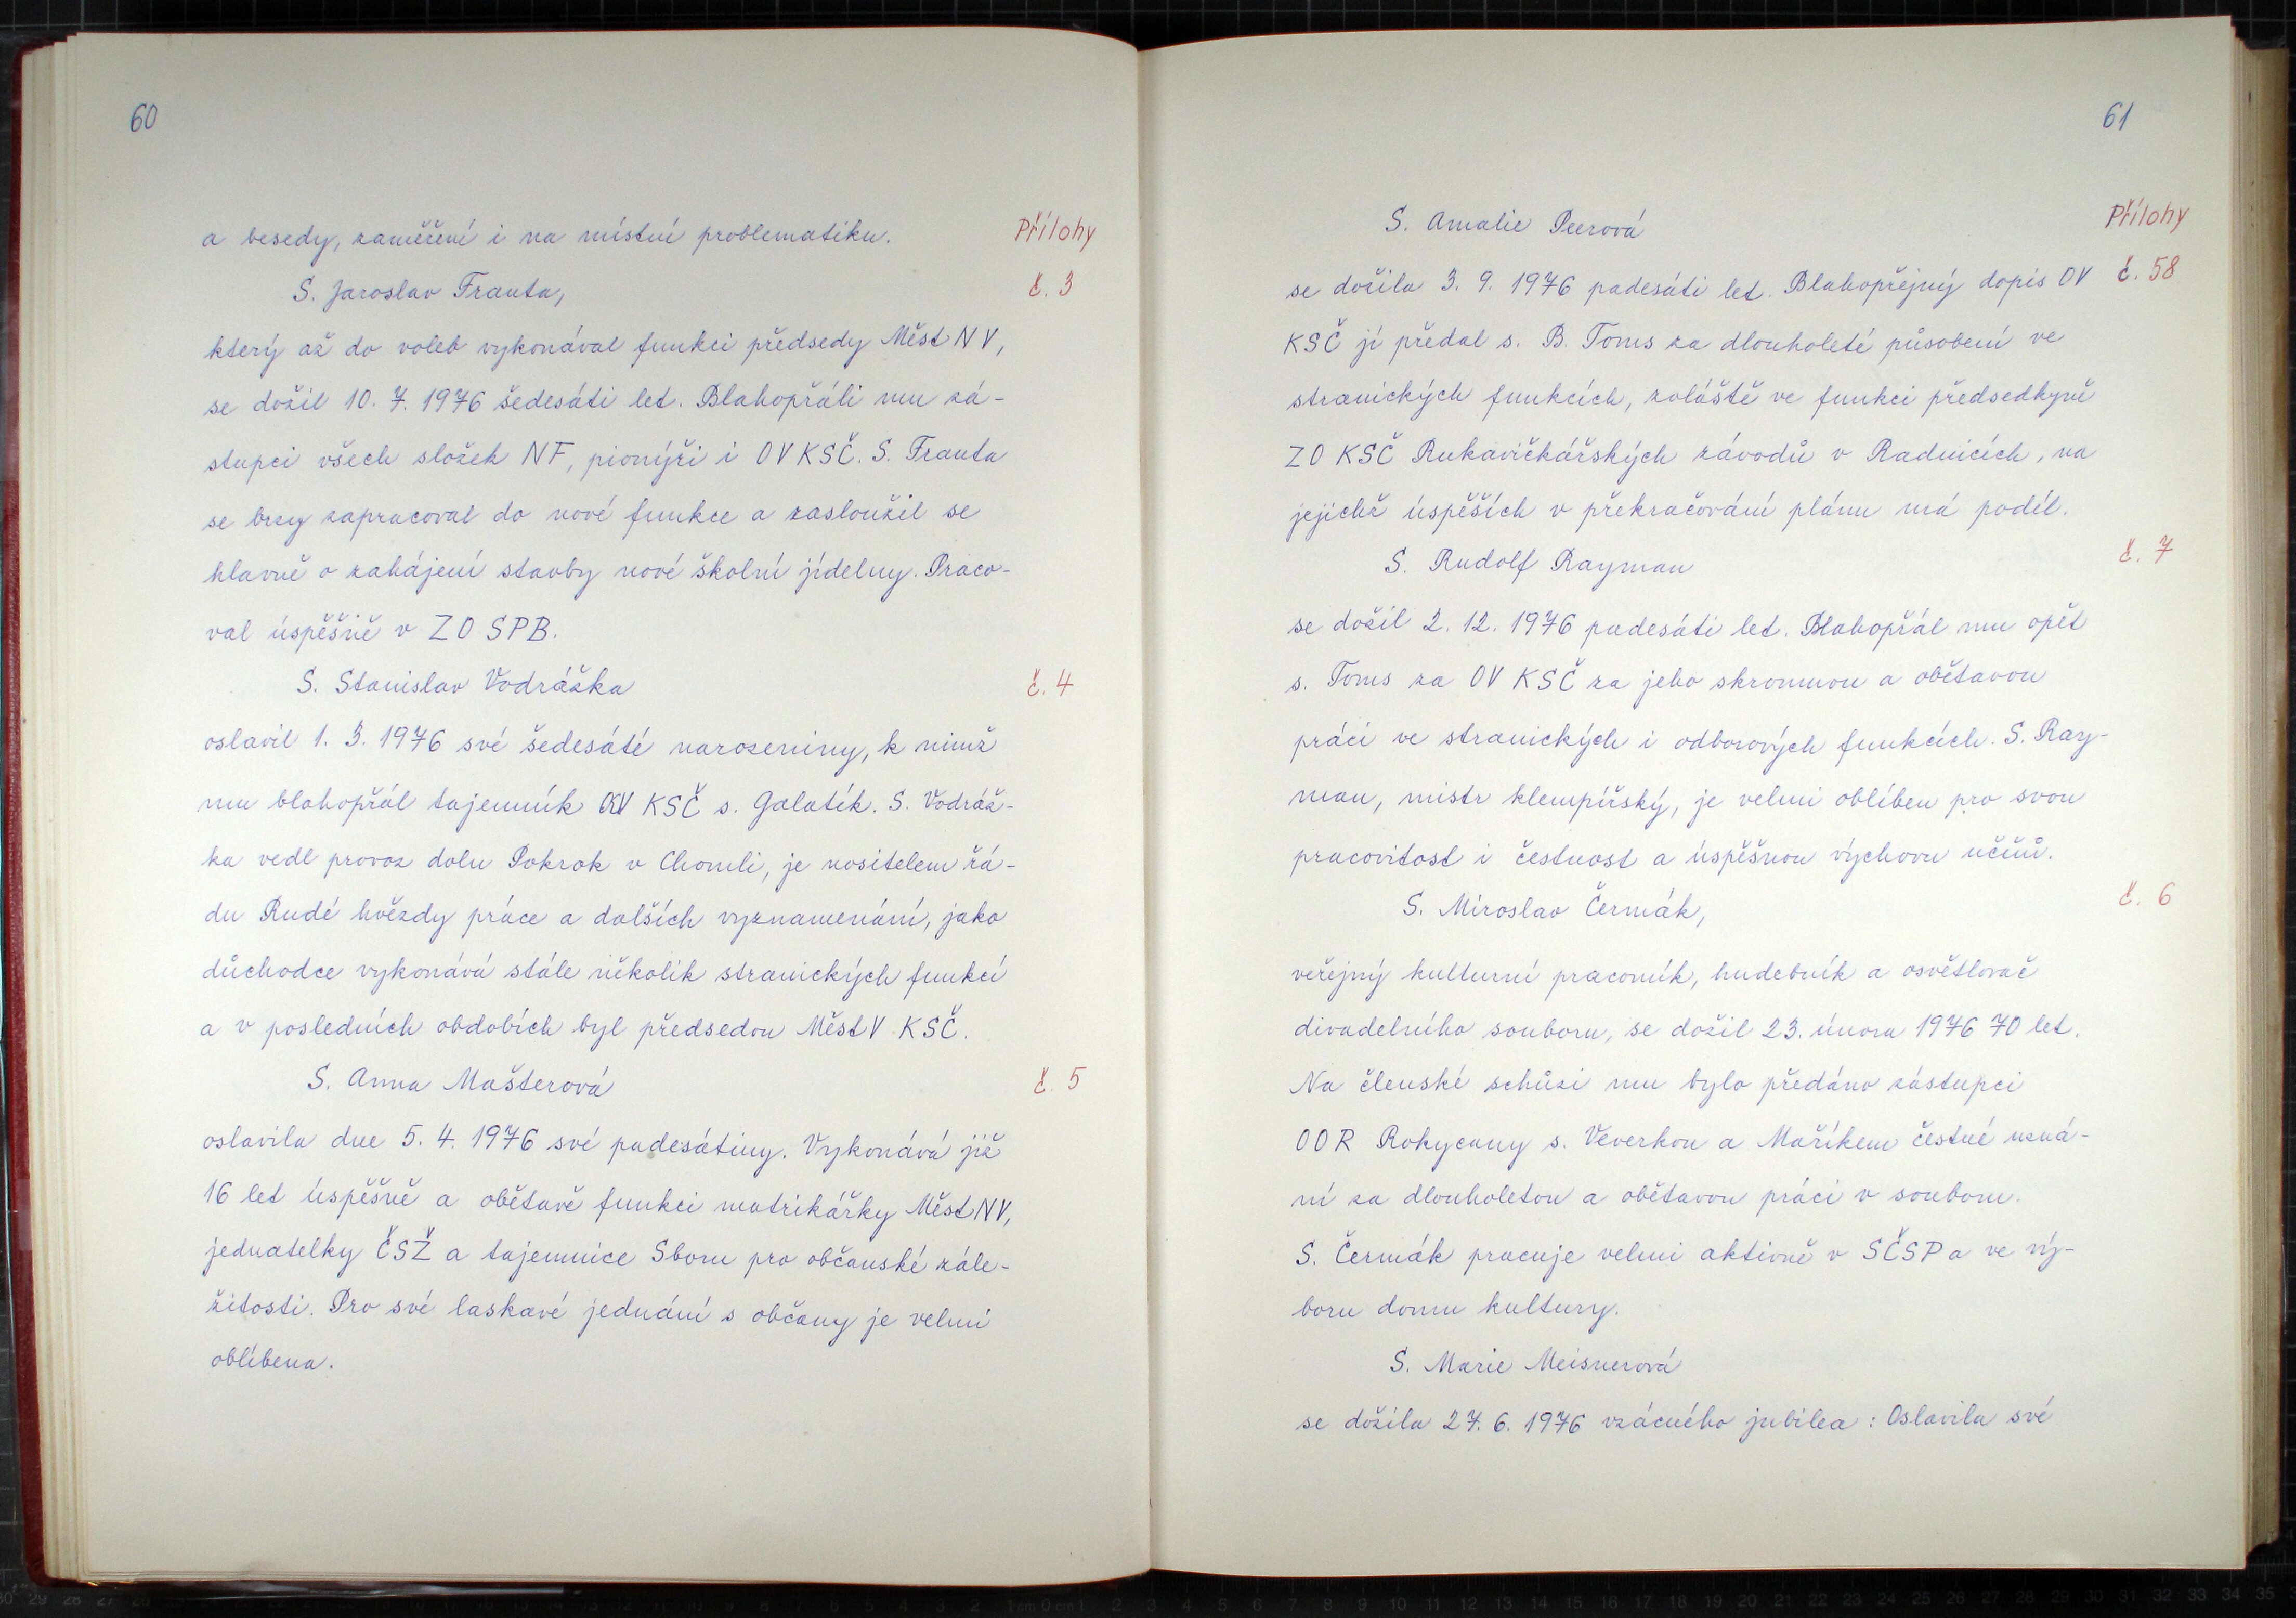 60
a besedy, zaměření i na místní problematiku.
Přílohy
S. Jaroslav Frauta,
č. 3
který až do voleb vykonával funkci předsedy Měst NV,
se dožil 10. 7. 1976 šedesáti let. Blahopřáli mu zá-
stupci všech složek NF, pionýři i OV KSČ. S. Frauta
se brzy zapracoval do nové funkce a zasloužil se
hlavně o zahájení stavby nové školní jídelny. Praco-
val úspěšně v ZO SPB.
S. Stanislav Vodrážka
č. 4
oslavil 1. 3. 1976 své šedesáté narozeniny, k nimž
mu blahopřál tajemník KSČ s. Galatík. S. Vodráž-
ka vedl provoz dolu Pokrok v Chomli, je nositelem řá-
du Rudé hvězdy práce a dalších vyznamenání, jako
důchodce vykonává stále několik stranických funkcí
a v posledních obdobích byl předsedou Měst V KSČ.
S. Anna Mašterová
č. 5
oslavila dne 5. 4. 1976 své padesátiny. Vykonává již
16 let úspěšně a obětavě funkci matrikářky Měst NV,
jednatelky ČSŽ a tajemnice Sboru pro občanské zále-
žitosti. Pro své laskavé jednání s občany je velmi
oblíbena.
61
S. Amalie Peerová
Přílohy
se dožila 3. 9. 1976 padesáti let. Blahopřejný dopis OV
č. 58
KSČ jí předal s. B. Toms za dlouholeté působení ve
stranických funkcích, zvláště ve funkci předsedkyně
ZO KSČ Rukavičkářských závodů v Radnicích, na
jejichž úspěších v překračování plánu má podíl.
S. Rudolf Rayman
č. 7
se dožil 2. 12. 1976 padesáti let. Blahopřál mu opět
s. Toms za OV KSČ za jeho skromnou a obětavou
práci ve stranických i odborových funkcích. S. Ray-
man, mistr klempířský, je velmi oblíben pro svou
pracovitost i čestnost a úspěšnou výchovu učňů.
S. Miroslav Čermák,
č. 6
veřejný kulturní pracovník, hudebník a osvětlovač
divadelního souboru, se dožil 23. února 1976 70 let.
Na členské schůzi mu bylo předáno zástupci
OOR Rokycany s. Veverkou a Maříkem čestné uzná-
ní za dlouholetou a obětavou práci v souboru.
S. Čermák pracuje velmi aktivně v SČSP a ve vý-
boru domu kultury.
S. Marie Meisnerová
se dožila 27. 6. 1976 vzácného jubilea : Oslavila své